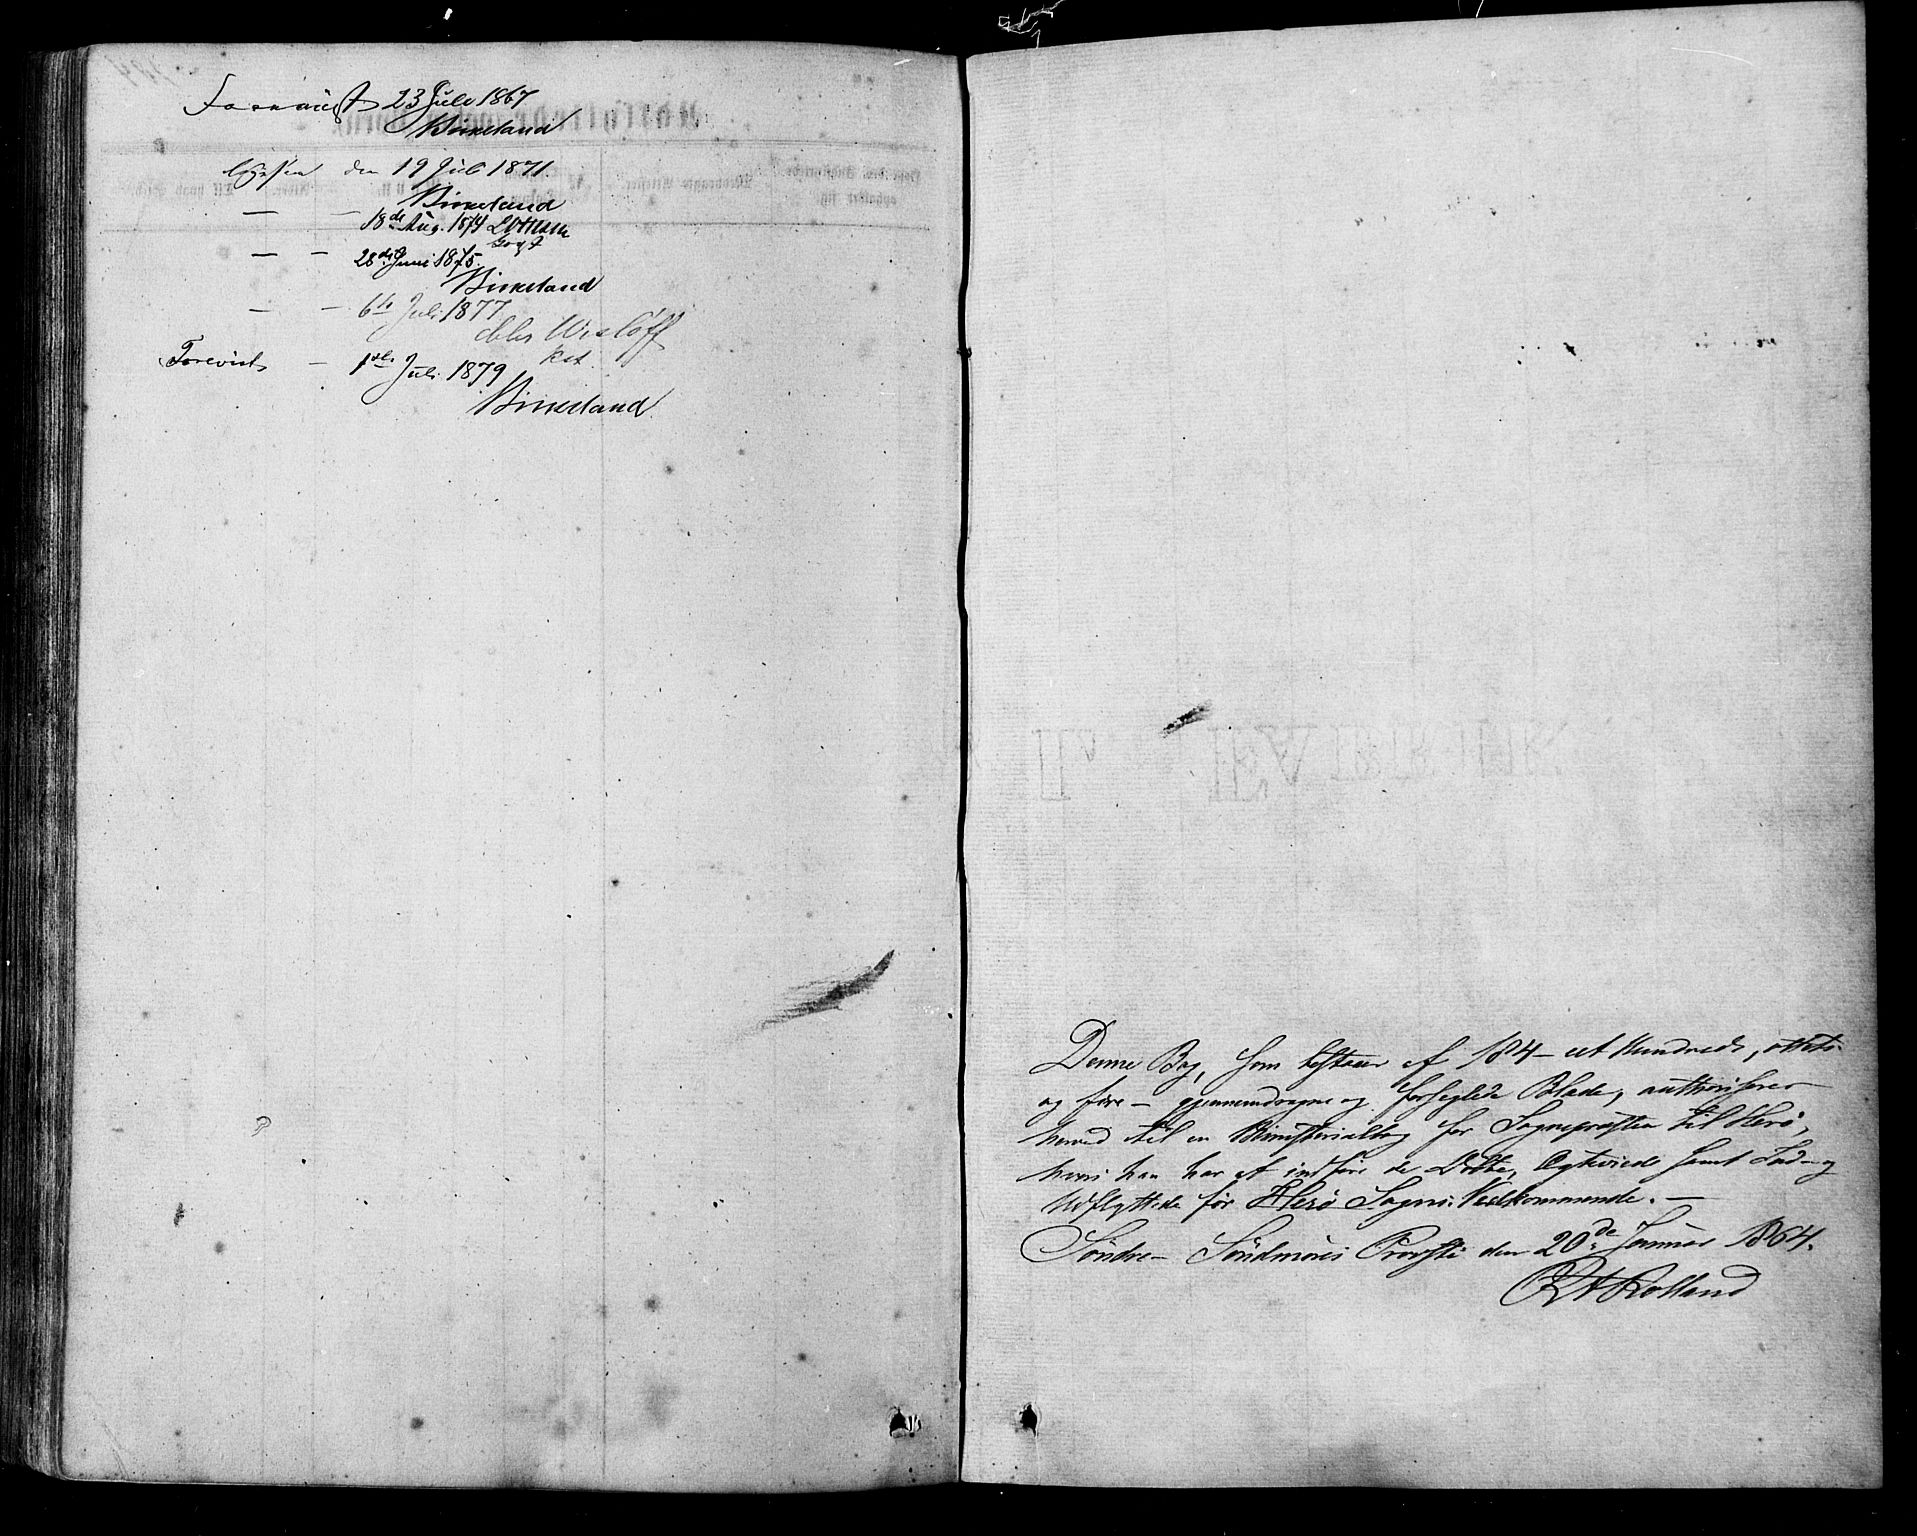 23 Juli 1867
Birkeland
den 19 Juli 1871.
Birkeland
— — 18de Aug. 1874
— — 28de Juni 1875.
Birkeland
— — 6te Juli 1877
Wisløff
kst.
Forevist — 1ste Juli 1879
Birkeland.
Denne Bog, som bestaaer af 184 — eet Hundrede, otteti-
og fire — gjennemdragne og forseglede Blade, authoriseres
herved til en Ministerialbog for Sognepræsten til Herø,
hvori han har at indføre de Døbte, Ægteviede samt Ind- og
Udflyttede for Herø Sogns Vedkommende. —
Søndre- Søndmøres Provsti den 20de Januar 1864.
Rolland